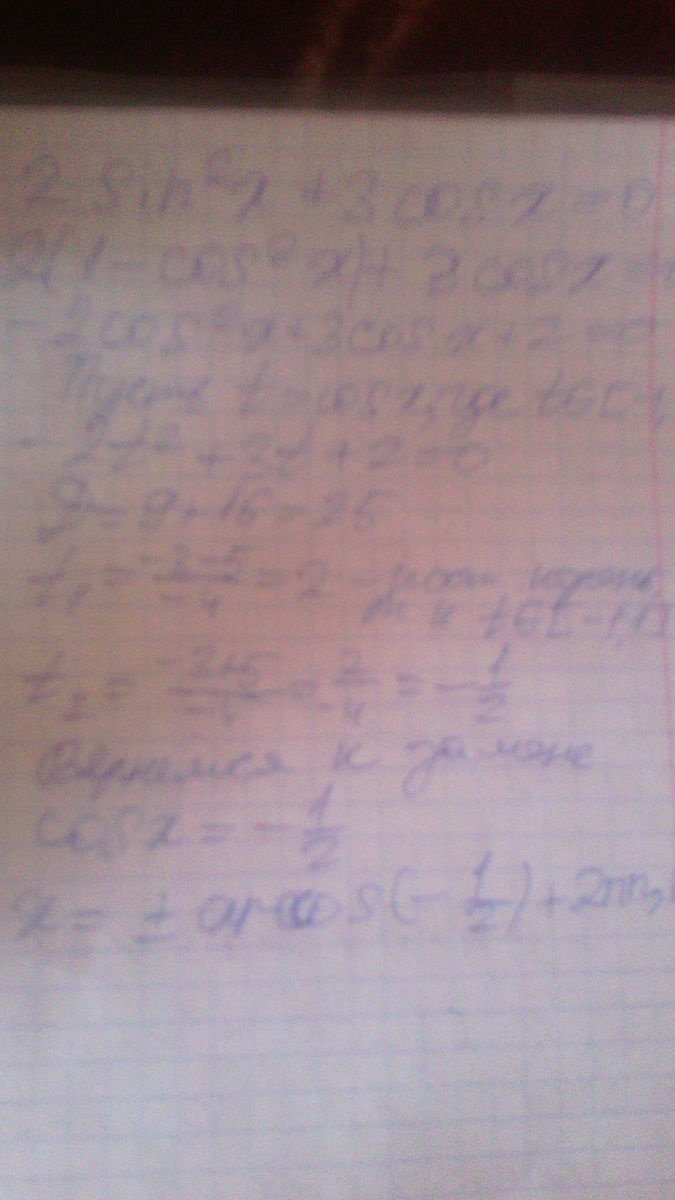 2 sin²x + 3 cos x = 0
2(1 - cos²x) + 3 cos x =
- 2cos²x + 3cos x + 2 = 0
Пусть t = cos x, где t ∈ [-1,
- 2t² + 3t + 2 = 0
D = 9 + 16 = 25
t₁ = -3-5/-4 = 2 - корень
t ∈ [-1,1]
t₂ = -3+5/-4 = 2/-4 = - 1/2
Вернемся к замене
cos x = - 1/2
x = ± arccos(- 1/2) + 2πn,